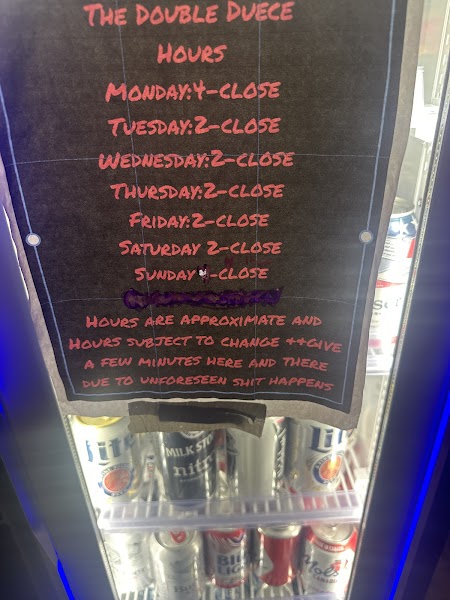 The Double Duece
Hours
Monday:4-close
Tuesday:2-close
Wednesday:2-close
Thursday:2-close
Friday:2-close
Saturday 2-close
Sunday -close
Hours are approximate and
Hours subject to change ++give
a few minutes here and there
due to unforeseen shit happens
Lite
MILK STOUT
nitro
Lite
Molson